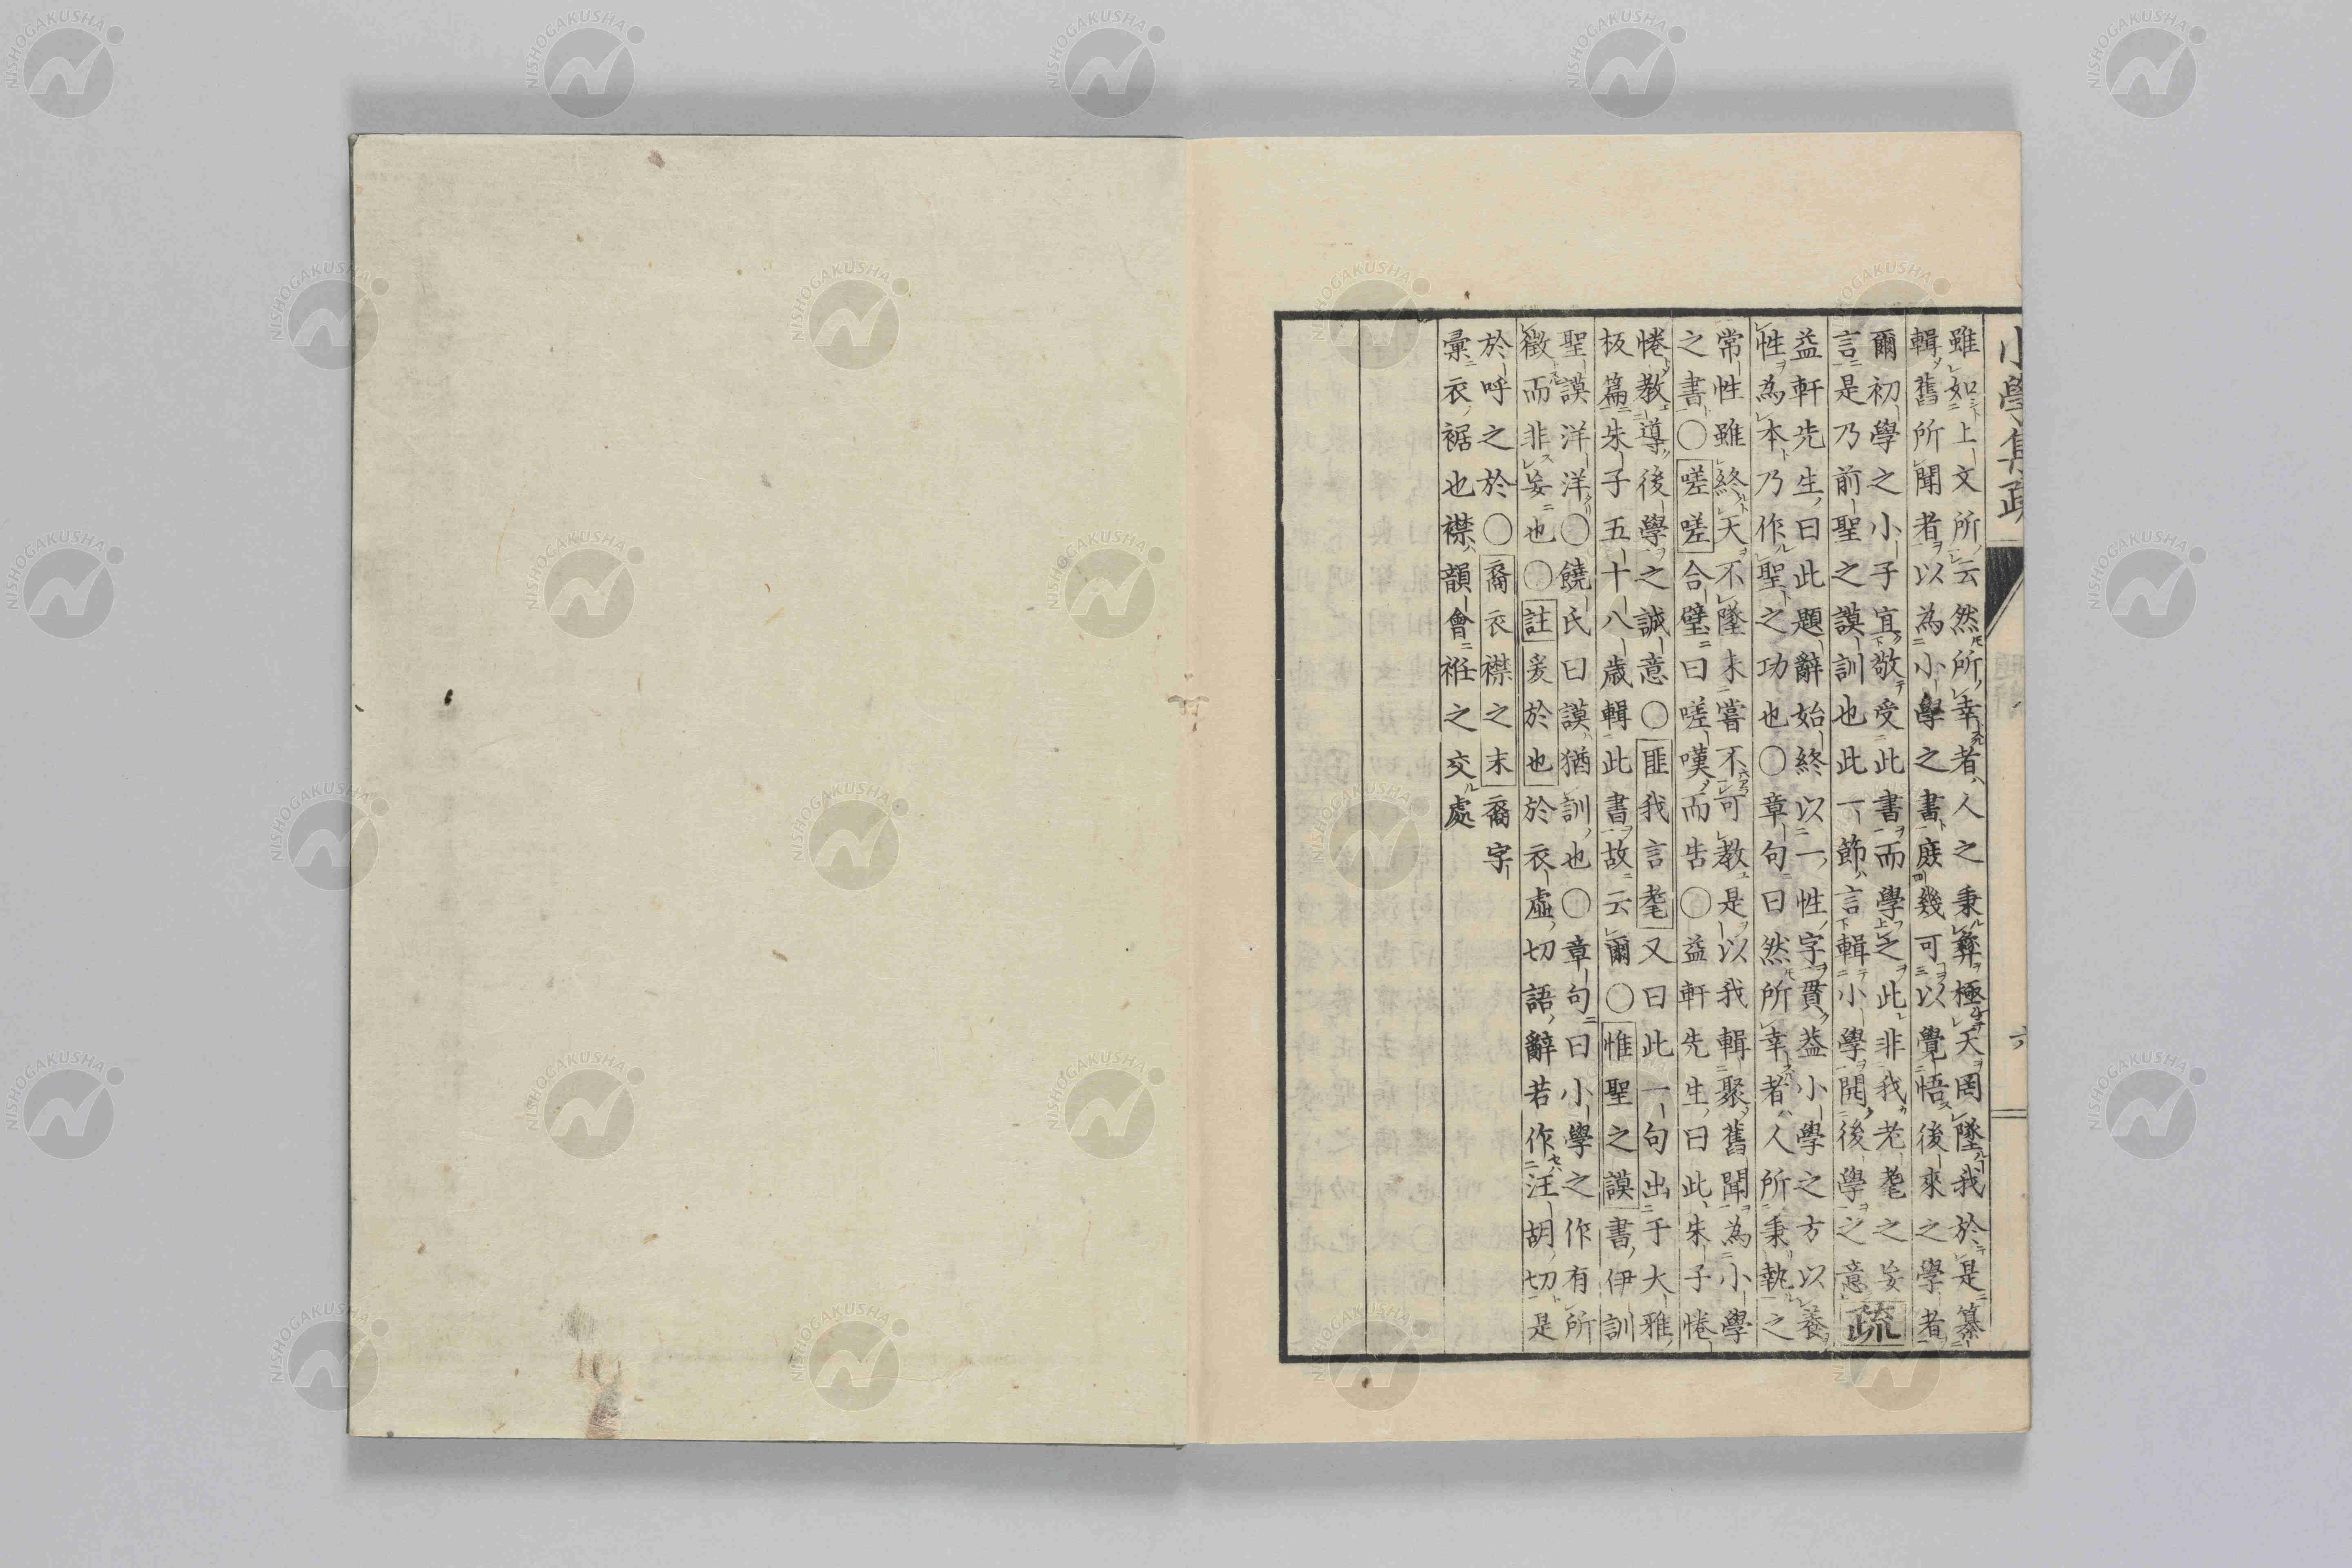 小學集疏
六
雖如上文所云然所幸者人之秉彝極天罔墜我於是纂
輯舊所聞者以為小學之書庶幾可以覺悟後來之學者
爾初學之小子宜敬受此書而學之此非我老耄之妄
言是乃前聖之謨訓也此一節言輯小學開後學之意 疏
益軒先生曰此題辭始終以一性字貫益小學之方以養
性為本乃作聖之功也〇章句曰然所幸者人所秉執之
常性雖終天不墜未嘗不可教是以我輯聚舊聞為小學
之書〇嗟嗟合璧曰嗟嘆而告〇益軒先生曰此朱子惓
惓教導後學之誠意〇匪我言耄又曰此一句出于大雅
板篇朱子五十八歲輯此書故云爾〇惟聖之謨書伊訓
聖謨洋洋〇饒氏曰謨猶訓也〇章句曰小學之作有所
徵而非妄也〇註爰於也於衣虛切語辭若作汪胡切是
於呼之於〇裔衣襟之末裔字
彙衣裾也襟韻會衽之交處
NISHOGAKUSHA